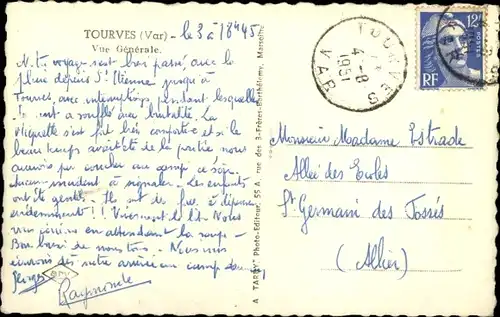 TOURVES (Var) - le 3 à 18h45
Vue Générale.
N. t. voyage s'est bien passé, avec la
pluie depuis St. Etienne jusqu'à
Tourves, avec interruptions pendant lesquelles
le vent a soufflé avec brutalité. La
s'est fort bien comportée et si le
beau temps avait été de la partie nous
aurions pu coucher au camp ce soir.
Aucun incident à signaler. Les enfants
ont été gentils. Ils ont de frère à dépenser
évidemment!! Vivement le lit. Nous
vous écrivons en attendant la soupe -
Bons baisers de nous tous - Nous vous
écrirons dès notre arrivée au camp
Raymonde
A TARDY Photo-Editeur 55 A rue des 3-Frères-Barthélemy, Marseille
TOURVES
4 - 8
1951
VAR
12F
POSTES
RF
Monsieur Madame Estrade
Allée des Ecoles
St Germain des Fossés
(Allier)